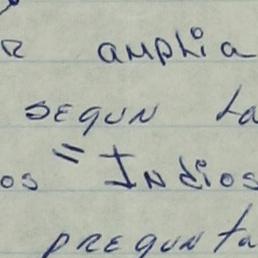 r amplia
segun la
os = Indios
pregunta